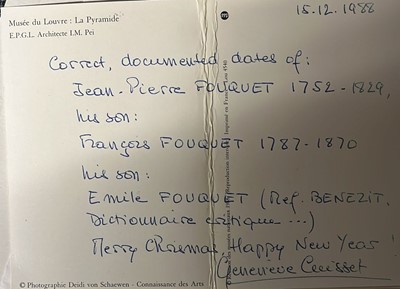 Musée du Louvre : La Pyramide
E.P.G.L. Architecte I.M. Pei
15.12.1988
Correct, documented dates of:
Jean-Pierre FOUQUET 1752-1829,
his son:
François FOUQUET 1787-1870
his son:
Emile FOUQUET (Ref. BENEZIT,
Dictionnaire critique ...)
Merry Christmas, Happy New Year
Geneviève
© Photographie Deidi von Schaewen - Connaissance des Arts